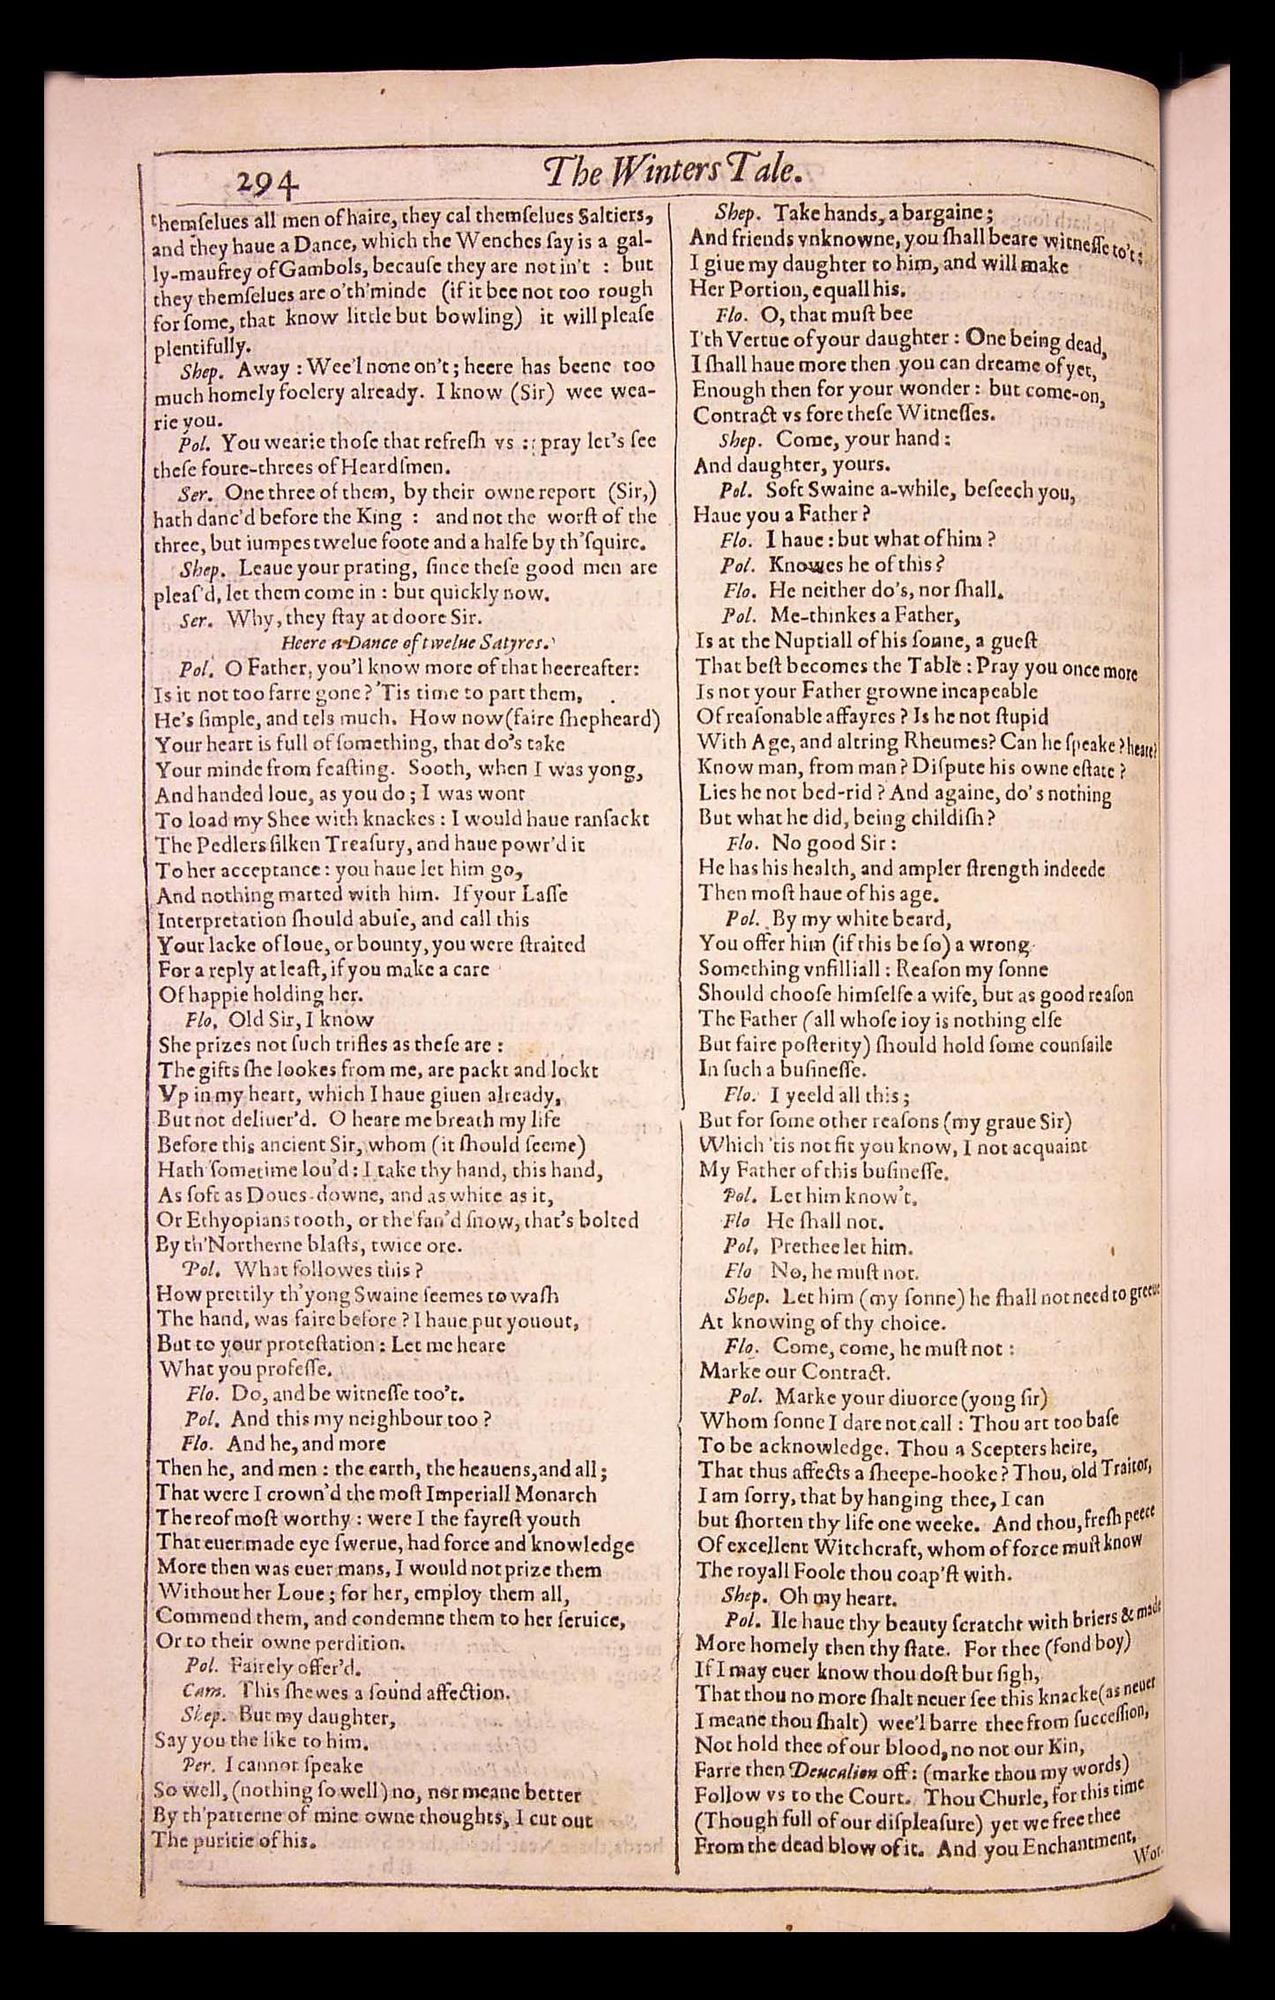 294
The Winters Tale.
themſelues all men of haire, they cal themſelues Saltiers,
and they haue a Dance, which the Wenches ſay is a gal-
ly-maufrey of Gambols, becauſe they are not in't : but
they themſelues are o'th'minde (if it bee not too rough
for ſome, that know little but bowling) it will pleaſe
plentifully.
Shep. Away : Wee'l none on't ; heere has beene too
much homely foolery already. I know (Sir) wee wea-
rie you.
Pol. You wearie thoſe that refreſh vs : pray let's ſee
theſe foure-threes of Heardſmen.
Ser. One three of them, by their owne report (Sir,)
hath danc'd before the King : and not the worſt of the
three, but iumpes twelue foote and a halfe by th'ſquire.
Shep. Leaue your prating, ſince theſe good men are
pleaſ'd, let them come in : but quickly now.
Ser. Why, they ſtay at doore Sir.
Heere a Dance of twelue Satyres.
Pol. O Father, you'l know more of that heereafter:
Is it not too farre gone? 'Tis time to part them,
He's ſimple, and tels much. How now (faire ſhepheard)
Your heart is full of ſomething, that do's take
Your minde from feaſting. Sooth, when I was yong,
And handed loue, as you do ; I was wont
To load my Shee with knackes : I would haue ranſackt
The Pedlers ſilken Treaſury, and haue powr'd it
To her acceptance : you haue let him go,
And nothing marted with him. If your Laſſe
Interpretation ſhould abuſe, and call this
Your lacke of loue, or bounty, you were ſtraited
For a reply at leaſt, if you make a care
Of happie holding her.
Flo. Old Sir, I know
She prizes not ſuch trifles as theſe are :
The gifts ſhe lookes from me, are packt and lockt
Vp in my heart, which I haue giuen already,
But not deliuer'd. O heare me breath my life
Before this ancient Sir, whom (it ſhould ſeeme)
Hath ſometime lou'd : I take thy hand, this hand,
As ſoft as Doues-downe, and as white as it,
Or Ethyopians tooth, or the fan'd ſnow, that's bolted
By th'Northerne blaſts, twice ore.
Pol. What followes this ?
How prettily th'yong Swaine ſeemes to waſh
The hand, was faire before ? I haue put you out,
But to your proteſtation : Let me heare
What you profeſſe.
Flo. Do, and be witneſſe too't.
Pol. And this my neighbour too ?
Flo. And he, and more
Then he, and men : the earth, the heauens, and all ;
That were I crown'd the moſt Imperiall Monarch
Thereof moſt worthy : were I the fayreſt youth
That euer made eye ſwerue, had force and knowledge
More then was euer mans, I would not prize them
Without her Loue ; for her, employ them all,
Commend them, and condemne them to her ſeruice,
Or to their owne perdition.
Pol. Fairely offer'd.
Cam. This ſhewes a ſound affection.
Shep. But my daughter,
Say you the like to him.
Per. I cannot ſpeake
So well, (nothing ſo well) no, nor meane better
By th'patterne of mine owne thoughts, I cut out
The puritie of his.
Shep. Take hands, a bargaine ;
And friends vnknowne, you ſhall beare witneſſe to't :
I giue my daughter to him, and will make
Her Portion, equall his.
Flo. O, that muſt bee
I'th Vertue of your daughter : One being dead,
I ſhall haue more then you can dreame of yet,
Enough then for your wonder : but come-on,
Contract vs fore theſe Witneſſes.
Shep. Come, your hand :
And daughter, yours.
Pol. Soft Swaine a-while, beſeech you,
Haue you a Father ?
Flo. I haue : but what of him ?
Pol. Knowes he of this ?
Flo. He neither do's, nor ſhall.
Pol. Me-thinkes a Father,
Is at the Nuptiall of his ſonne, a gueſt
That beſt becomes the Table : Pray you once more
Is not your Father growne incapeable
Of reaſonable affayres ? Is he not ſtupid
With Age, and altring Rheumes? Can he ſpeake ? heare?
Know man, from man ? Diſpute his owne eſtate ?
Lies he not bed-rid ? And againe, do's nothing
But what he did, being childiſh ?
Flo. No good Sir :
He has his health, and ampler ſtrength indeede
Then moſt haue of his age.
Pol. By my white beard,
You offer him (if this be ſo) a wrong
Something vnfilliall : Reaſon my ſonne
Should chooſe himſelfe a wife, but as good reaſon
The Father (all whoſe ioy is nothing elſe
But faire poſterity) ſhould hold ſome counſaile
In ſuch a buſineſſe.
Flo. I yeeld all this ;
But for ſome other reaſons (my graue Sir)
Which 'tis not fit you know, I not acquaint
My Father of this buſineſſe.
Pol. Let him know't.
Flo He ſhall not.
Pol. Prethee let him.
Flo No, he muſt not.
Shep. Let him (my ſonne) he ſhall not need to greeue
At knowing of thy choice.
Flo. Come, come, he muſt not :
Marke our Contract.
Pol. Marke your diuorce (yong ſir)
Whom ſonne I dare not call : Thou art too baſe
To be acknowledge. Thou a Scepters heire,
That thus affects a ſheepe-hooke ? Thou, old Traitor,
I am ſorry, that by hanging thee, I can
but ſhorten thy life one weeke. And thou, freſh peece
Of excellent Witchcraft, whom of force muſt know
The royall Foole thou coap'ſt with.
Shep. Oh my heart.
Pol. Ile haue thy beauty ſcratcht with briers & made
More homely then thy ſtate. For thee (fond boy)
If I may euer know thou doſt but ſigh,
That thou no more ſhalt neuer ſee this knacke (as neuer
I meane thou ſhalt) wee'l barre thee from ſucceſſion,
Not hold thee of our blood, no not our Kin,
Farre then Deucalion off : (marke thou my words)
Follow vs to the Court. Thou Churle, for this time
(Though full of our diſpleaſure) yet we free thee
From the dead blow of it. And you Enchantment,
Wor-